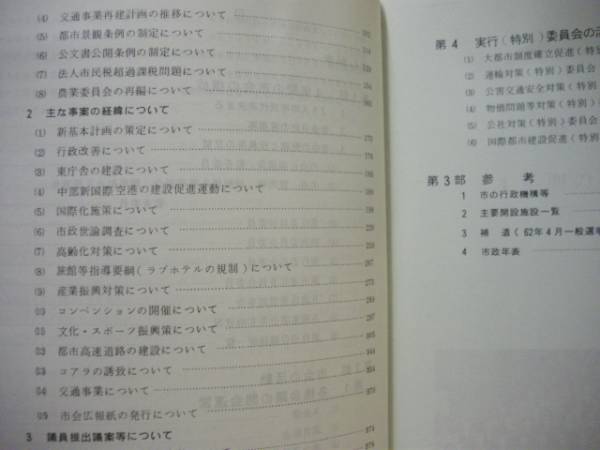 (4) 交通事業再建計画の推移について
(5) 都市景観条例の制定について
(6) 公文書公開条例の制定について
(7) 法人市民税超過課税問題について
(8) 農業委員会の再編について
2 主な事案の経緯について
(1) 新基本計画の策定について
(2) 行政改善について
(3) 東庁舎の建設について
(4) 中部新国際空港の建設促進運動について
(5) 国際化施策について
(6) 市政世論調査について
(7) 高齢化対策について
(8) 旅館等指導要綱(ラブホテルの規制)について
(9) 産業振興対策について
(10) コンベンションの開催について
(11) 文化・スポーツ振興策について
(12) 都市高速道路の建設について
(13) コアラの誘致について
(14) 交通事業について
(15) 市会広報紙の発行について
3 議員提出議案等について
第4 実行(特別)委員会の
(1) 大都市制度確立促進(特
(2) 運輸対策(特別)委員会
(3) 公害交通安全対策(特
(4) 物価問題等対策(特別)
(5) 公社対策(特別)委員会
(6) 国際都市建設促進(特別
第3部 参考
1 市の行政機構等
2 主要開設施設一覧
3 補遺(62年4月一般選
4 市政年表